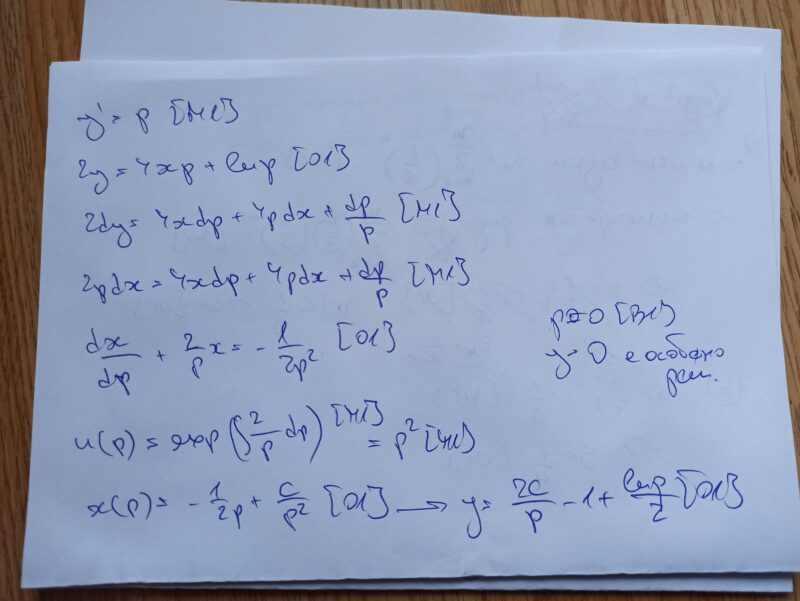 y' = p [M1]
2y = 4xp + ln p [O1]
2dy = 4xdp + 4pdx + dp/p [M1]
2pdx = 4xdp + 4pdx + dp/p [M1]
dx/dp + 2/p x = - 1/2p² [O1]
p=0 [B1]
y=0 е особено
реш.
u(p) = exp(∫2/p dp) [M1] = p² [M1]
x(p) = - 1/2p + C/p² [O1] → y = 2C/p - 1 + ln p/2 [O1]